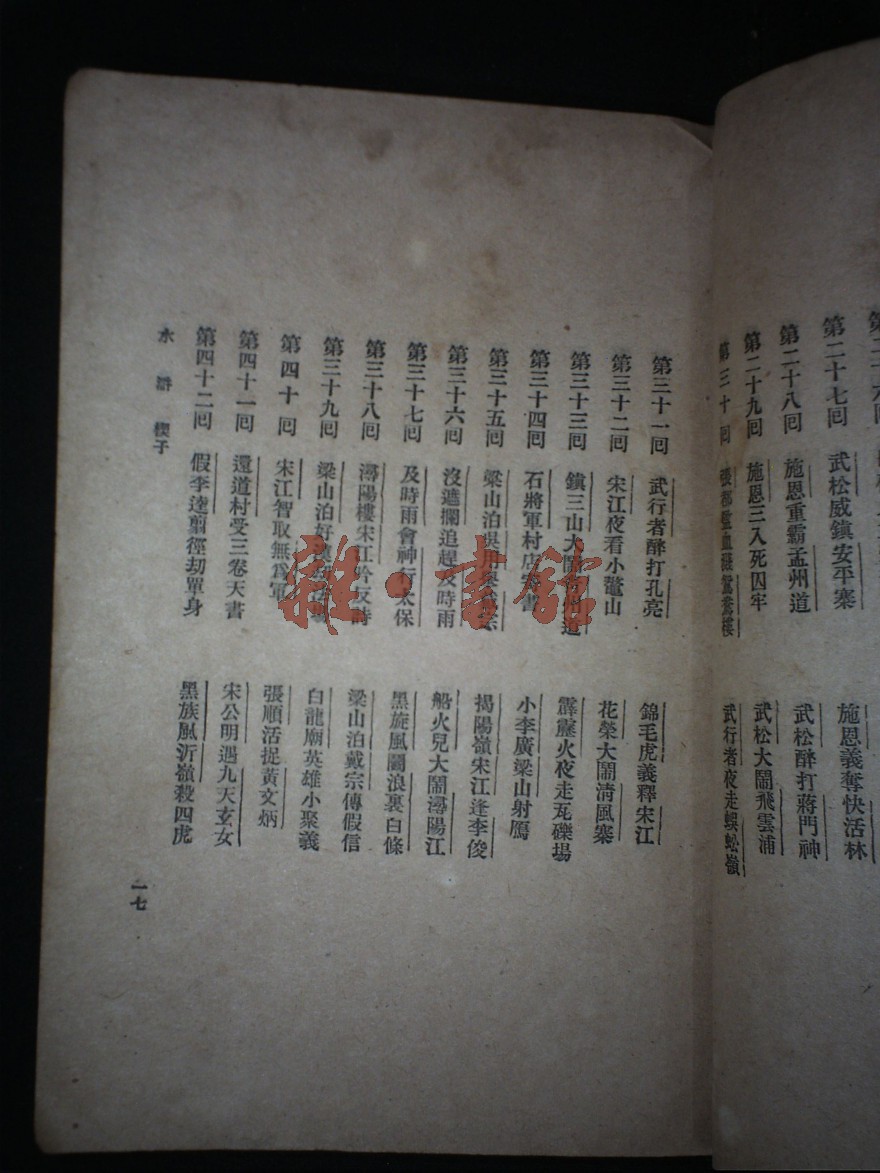 第二十七回　武松威鎮安平寨　施恩義奪快活林
第二十八回　施恩重霸孟州道　武松醉打蔣門神
第二十九回　施恩三入死囚牢　武松大鬧飛雲浦
第三十回　血濺鴛鴦樓　武行者夜走蜈蚣嶺
第三十一回　武行者醉打孔亮　錦毛虎義釋宋江
第三十二回　宋江夜看小鰲山　花榮大鬧清風寨
第三十三回　鎮三山大鬧青州道　霹靂火夜走瓦礫場
第三十四回　石將軍村店寄書　小李廣梁山射鴈
第三十五回　梁山泊吳用舉戴宗　揭陽嶺宋江逢李俊
第三十六回　沒遮攔追趕及時雨　船火兒大鬧潯陽江
第三十七回　及時雨會神行太保　黑旋風鬭浪裏白條
第三十八回　潯陽樓宋江吟反詩　梁山泊戴宗傳假信
第三十九回　梁山泊好漢　白龍廟英雄小聚義
第四十回　宋江智取無爲軍　張順活捉黃文炳
第四十一回　還道村受三卷天書　宋公明遇九天玄女
第四十二回　假李逵翦徑刧單身　黑旋風沂嶺殺四虎
水滸　楔子
一七
雜·書館